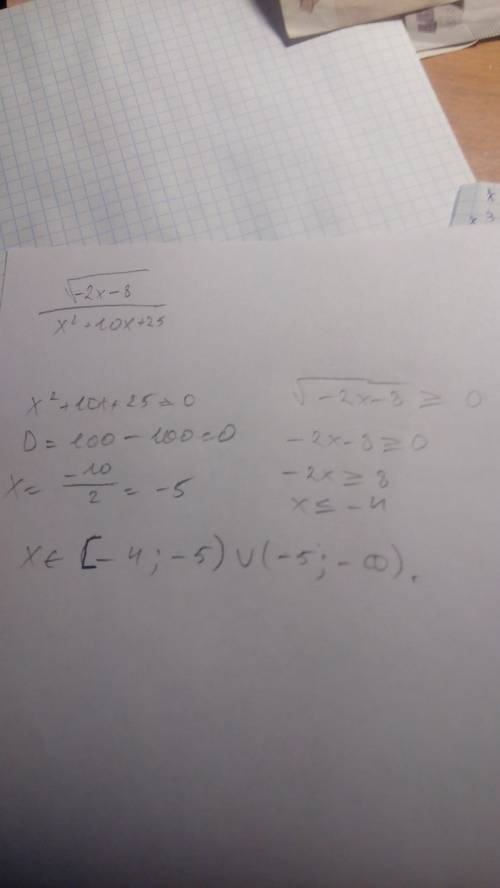 √-2x-8
x²+10x+25
x²+10x+25=0
D=100-100=0
x= -10/2 = -5
√-2x-8 ≥ 0
-2x-8≥0
-2x≥8
x≤-4
x∈[-4;-5)∪(-5;-∞).
x
x 3